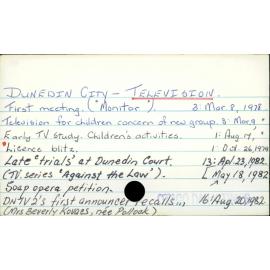 DUNEDIN CITY – TELEVISION.
First meeting. ("Monitor"). 3: Mar. 8, 1978
Television for children concern of new group. 3: Mar 9, "
Early TV study. Children's activities. 1: Aug. 17, "
Licence blitz. 1: Oct. 26, 1979
Late "trials" at Dunedin Court. 13: Apl. 23, 1982
(TV. series "Against the Law"). May 18, 1982
Soap opera petition.
DNTV2's first announcer recalls... 16: Aug. 20, 1982
(Mrs Beverly Kovacs, née Pollock)